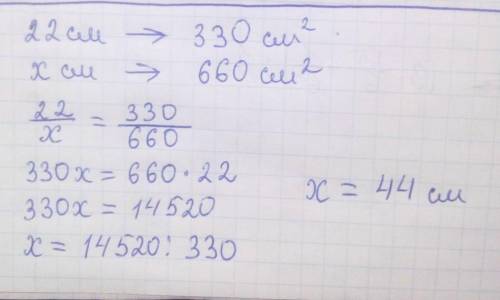 22 см → 330 см²
х см → 660 см²
22/х = 330/660
330х = 660 · 22
330х = 14520
х = 14520 : 330
х = 44 см